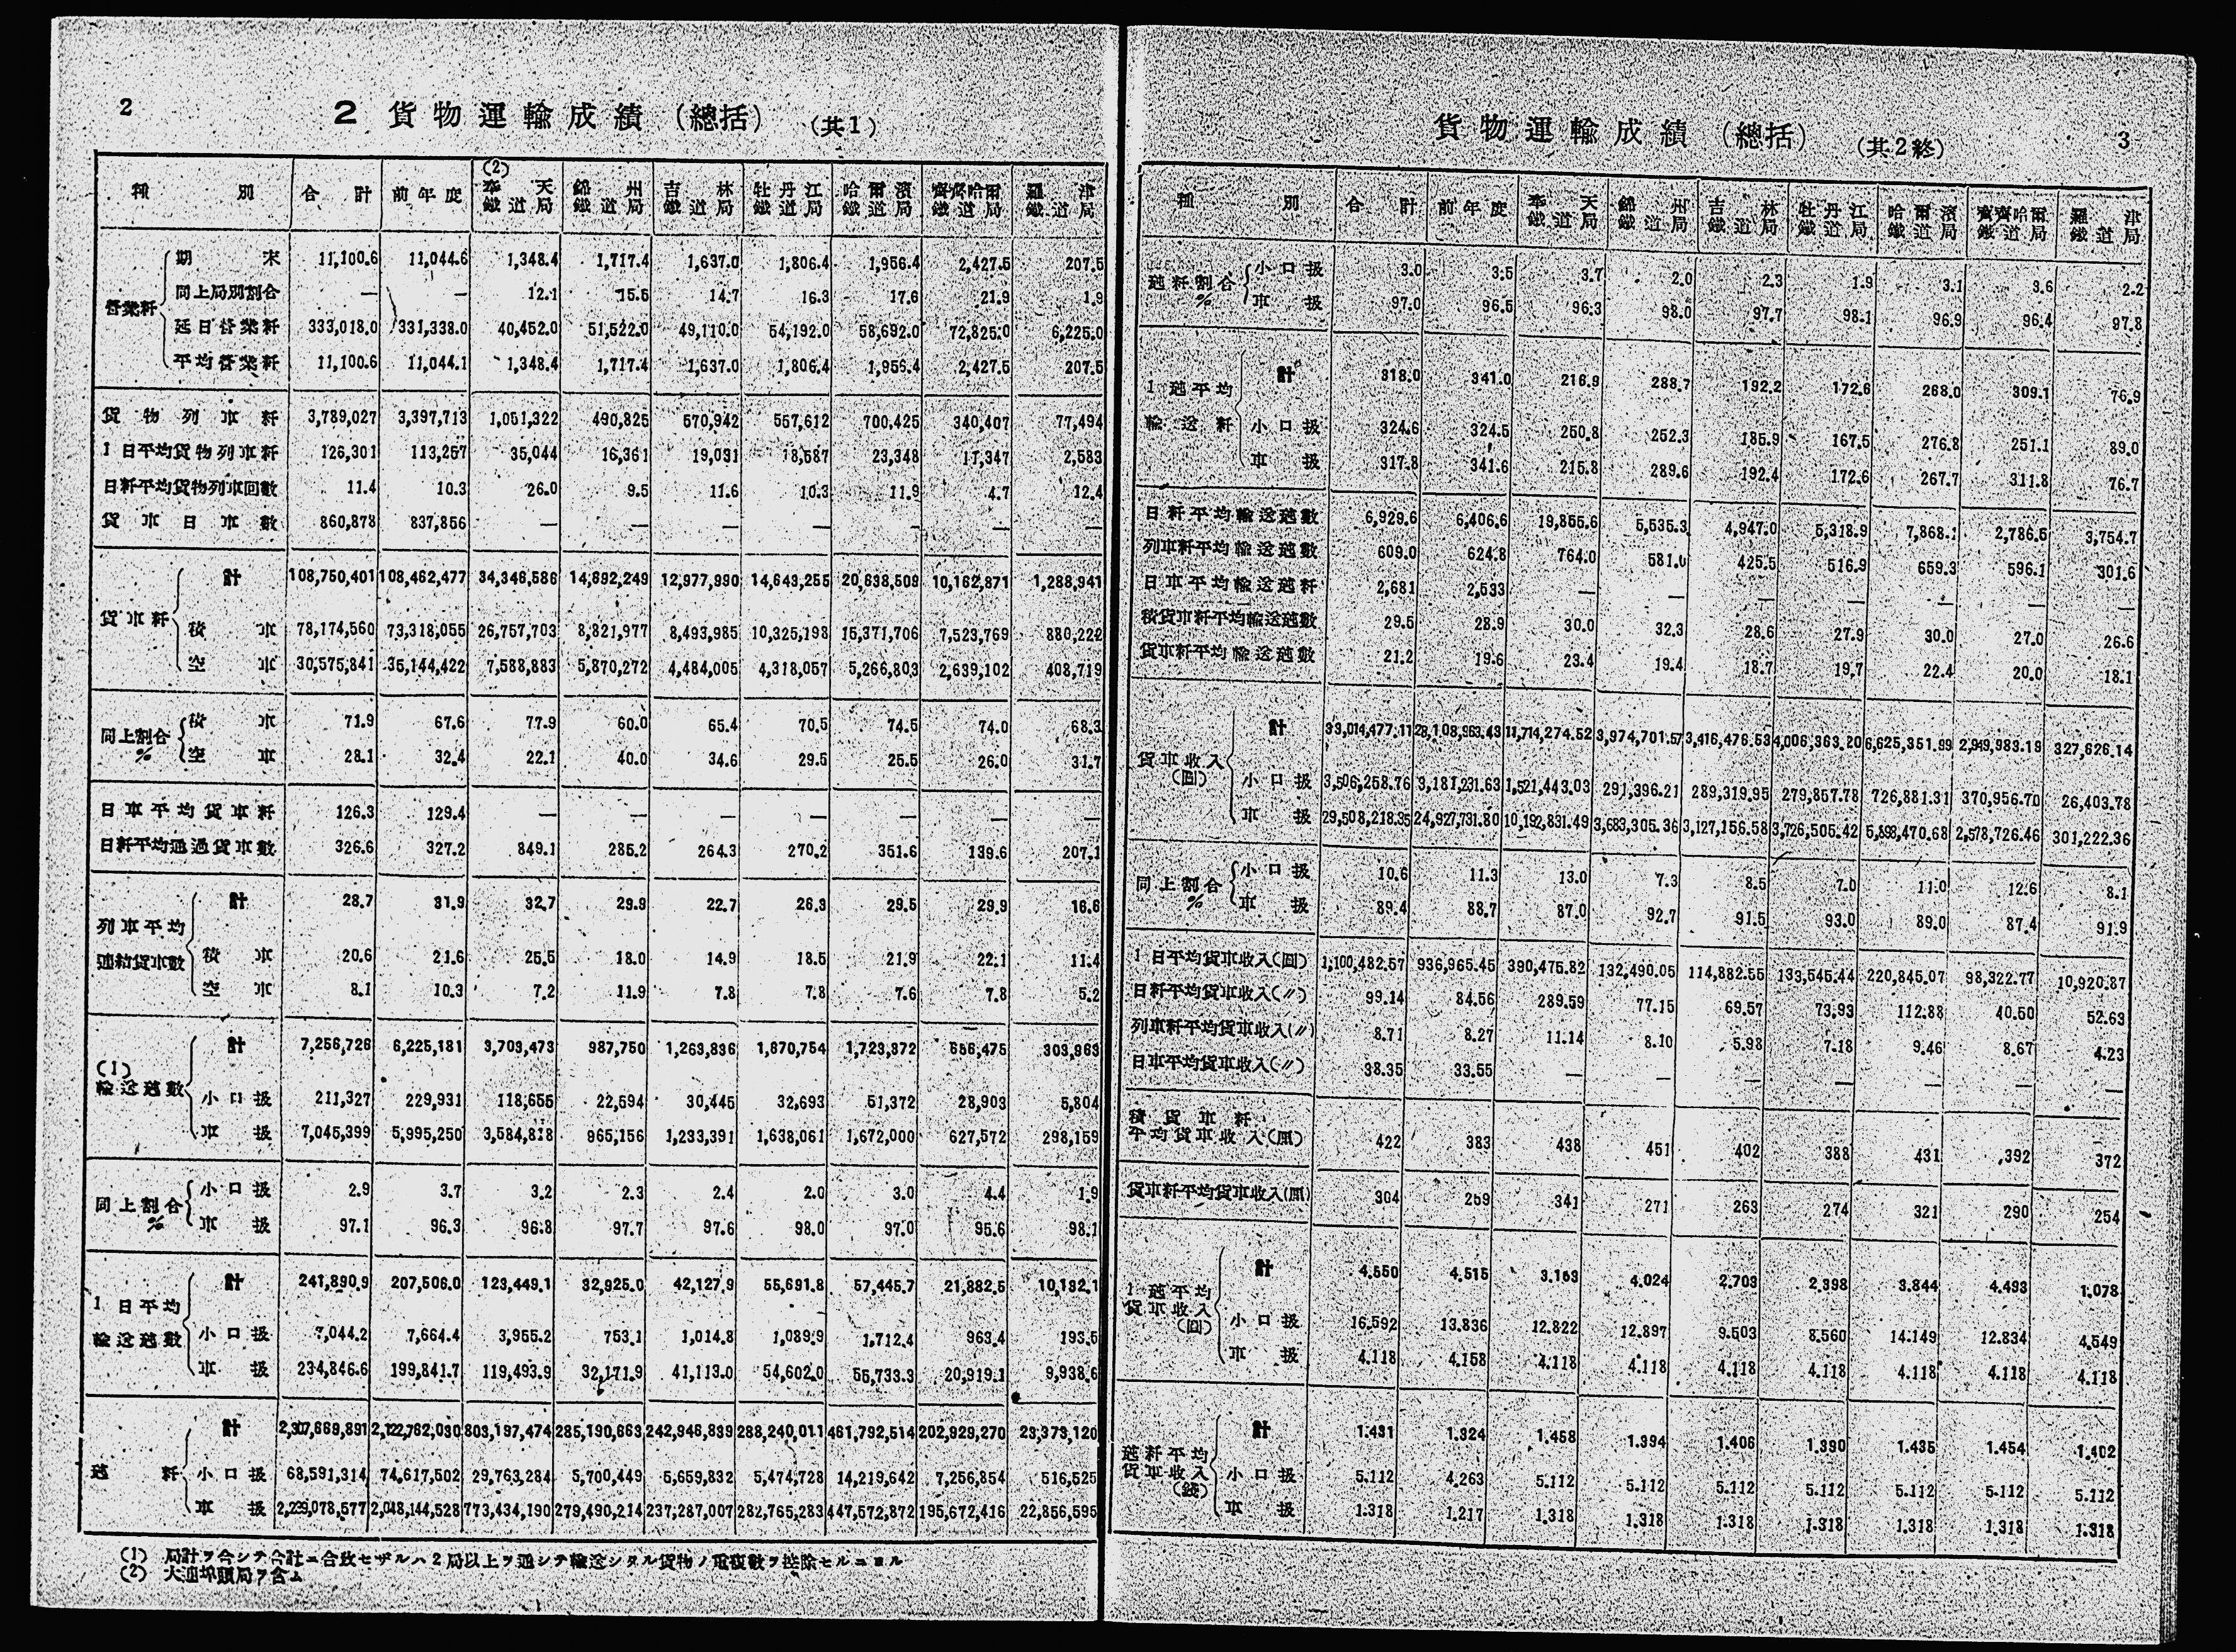 2
2 貨物運輸成績 (總括) (共1)
種別 合計 前年度 (2)奉天鐵道局 錦州鐵道局 吉林鐵道局 牡丹江鐵道局 哈爾濱鐵道局 齊齊哈爾鐵道局 羅津鐵道局
營業粁
期末 11,100.6 11,044.6 1,348.4 1,717.4 1,637.0 1,806.4 1,956.4 2,427.5 207.5
同上局別割合 — — 12.1 15.5 14.7 16.3 17.6 21.9 1.9
延日營業粁 333,018.0 331,338.0 40,452.0 51,522.0 49,110.0 54,192.0 58,692.0 72,825.0 6,225.0
平均營業粁 11,100.6 11,044.1 1,348.4 1,717.4 1,637.0 1,806.4 1,956.4 2,427.5 207.5
貨物列車粁 3,789,027 3,397,713 1,051,322 490,825 570,942 557,612 700,425 340,407 77,494
1日平均貨物列車粁 126,301 113,257 35,044 16,361 19,031 18,587 23,348 11,347 2,583
日粁平均貨物列車回數 11.4 10.3 26.0 9.5 11.6 10.3 11.9 4.7 12.4
貨車日車數 860,878 837,856 — — — — — — —
貨車粁
計 108,750,401 108,462,477 34,346,586 14,692,249 12,977,990 14,643,255 20,638,509 10,162,871 1,288,941
積車 78,174,560 73,318,055 26,757,703 8,821,977 8,493,985 10,325,198 15,371,706 7,523,769 880,222
空車 30,575,841 35,144,422 7,588,883 5,870,272 4,484,005 4,318,057 5,266,803 2,639,102 408,719
同上割合 %
積車 71.9 67.6 77.9 60.0 65.4 70.5 74.5 74.0 68.3
空車 28.1 32.4 22.1 40.0 34.6 29.5 25.5 26.0 31.7
日車平均貨車粁 126.3 129.4 — — — — — — —
日粁平均通過貨車數 326.6 327.2 849.1 285.2 264.3 270.2 351.6 139.6 207.1
列車平均連結貨車數
計 28.7 31.9 32.7 29.9 22.7 26.3 29.5 29.9 16.6
積車 20.6 21.6 25.5 18.0 14.9 18.5 21.9 22.1 11.4
空車 8.1 10.3 7.2 11.9 7.8 7.8 7.6 7.8 5.2
(1)輸送瓲數
計 7,256,726 6,225,181 3,703,473 987,750 1,263,836 1,670,754 1,723,372 656,475 303,963
小口扱 211,327 229,931 118,655 22,594 30,445 32,693 51,372 28,903 5,804
車扱 7,045,399 5,995,250 3,584,818 965,156 1,233,391 1,638,061 1,672,000 627,572 298,159
同上割合 %
小口扱 2.9 3.7 3.2 2.3 2.4 2.0 3.0 4.4 1.9
車扱 97.1 96.3 96.8 97.7 97.6 98.0 97.0 95.6 98.1
1日平均輸送瓲數
計 241,890.9 207,506.0 123,449.1 32,925.0 42,127.9 55,691.8 57,445.7 21,882.5 10,132.1
小口扱 7,044.2 7,664.4 3,955.2 753.1 1,014.8 1,089.9 1,712.4 963.4 193.5
車扱 234,846.6 199,841.7 119,493.9 32,171.9 41,113.0 54,602.0 55,733.3 20,919.1 9,938.6
瓲粁
計 2,307,669,891 2,122,762,030 803,197,474 285,190,663 242,946,839 288,240,011 461,792,514 202,929,270 23,373,120
小口扱 68,591,314 74,617,502 29,763,284 5,700,449 5,659,832 5,474,728 14,219,642 7,256,854 516,525
車扱 2,239,078,577 2,048,144,528 773,434,190 279,490,214 237,287,007 282,765,283 447,572,872 195,672,416 22,856,595
(1) 局計ヲ合シテ合計ニ合致セザルハ2局以上ヲ通シテ輸送シタル貨物ノ重複數ヲ控除セルニヨル
(2) 大連埠頭局ヲ含ム
貨物運輸成績 (總括) (共2終)
3
種別 合計 前年度 奉天鐵道局 錦州鐵道局 吉林鐵道局 牡丹江鐵道局 哈爾濱鐵道局 齊齊哈爾鐵道局 羅津鐵道局
瓲粁割合 %
小口扱 3.0 3.5 3.7 2.0 2.3 1.9 3.1 3.6 2.2
車扱 97.0 96.5 96.3 98.0 97.7 98.1 96.9 96.4 97.8
1瓲平均輸送粁
計 318.0 341.0 216.9 288.7 192.2 172.6 268.0 309.1 76.9
小口扱 324.6 324.5 250.8 252.3 185.9 167.5 276.8 251.1 89.0
車扱 317.8 341.6 215.8 289.6 192.4 172.6 267.7 311.8 76.7
日粁平均輸送瓲數 6,929.6 6,406.6 19,855.6 5,535.3 4,947.0 5,318.9 7,868.1 2,786.5 3,754.7
列車粁平均輸送瓲數 609.0 624.8 764.0 581.0 425.5 516.9 659.3 596.1 301.6
日車平均輸送瓲粁 2,681 2,533 — — — — — — —
積貨車粁平均輸送瓲數 29.5 28.9 30.0 32.3 28.6 27.9 30.0 27.0 26.6
貨車粁平均輸送瓲數 21.2 19.6 23.4 19.4 18.7 19.7 22.4 20.0 18.1
貨車收入(圓)
計 33,014,477.11 28,108,963.43 11,714,274.52 3,974,701.57 3,416,476.53 4,006,363.20 6,625,351.99 2,949,983.19 327,626.14
小口扱 3,506,258.76 3,181,231.63 1,521,443.03 291,396.21 289,319.95 279,857.78 726,881.31 370,956.70 26,403.78
車扱 29,508,218.35 24,927,731.80 10,192,831.49 3,683,305.36 3,127,156.58 3,726,505.42 5,898,470.68 2,578,726.46 301,222.36
同上割合 %
小口扱 10.6 11.3 13.0 7.3 8.5 7.0 11.0 12.6 8.1
車扱 89.4 88.7 87.0 92.7 91.5 93.0 89.0 87.4 91.9
1日平均貨車收入(圓) 1,100,482.57 936,965.45 390,475.82 132,490.05 114,882.55 133,545.44 220,845.07 98,322.77 10,920.87
日粁平均貨車收入(〃) 99.14 84.56 289.59 77.15 69.57 73.93 112.88 40.50 52.63
列車粁平均貨車收入(〃) 8.71 8.27 11.14 8.10 5.98 7.18 9.46 8.67 4.23
日車平均貨車收入(〃) 38.35 33.55 — — — — — — —
積貨車粁平均貨車收入(厘) 422 383 438 451 402 388 431 392 372
貨車粁平均貨車收入(厘) 304 259 341 271 263 274 321 290 254
1瓲平均貨車收入(圓)
計 4.550 4.515 3.163 4.024 2.703 2.398 3.844 4.493 1.078
小口扱 16.592 13.836 12.822 12.897 9.503 8.560 14.149 12.834 4.549
車扱 4.118 4.158 4.118 4.118 4.118 4.118 4.118 4.118 4.118
瓲粁平均貨車收入(錢)
計 1.431 1.324 1.458 1.394 1.406 1.390 1.435 1.454 1.402
小口扱 5.112 4.263 5.112 5.112 5.112 5.112 5.112 5.112 5.112
車扱 1.318 1.217 1.318 1.318 1.318 1.318 1.318 1.318 1.318